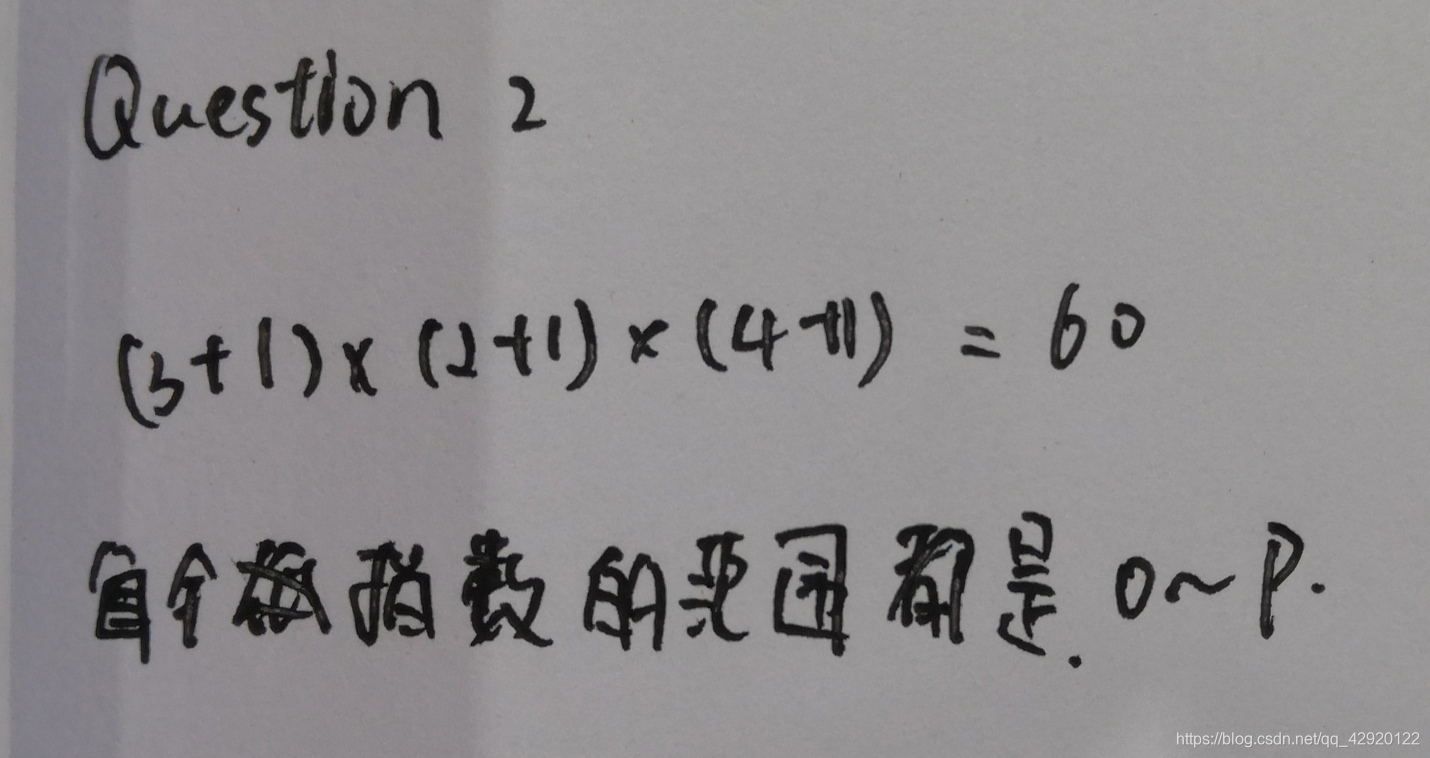 Question 2
(3+1)×(2+1)×(4+1) = 60
每个指数的范围都是 0~P.
https://blog.csdn.net/qq_42920122